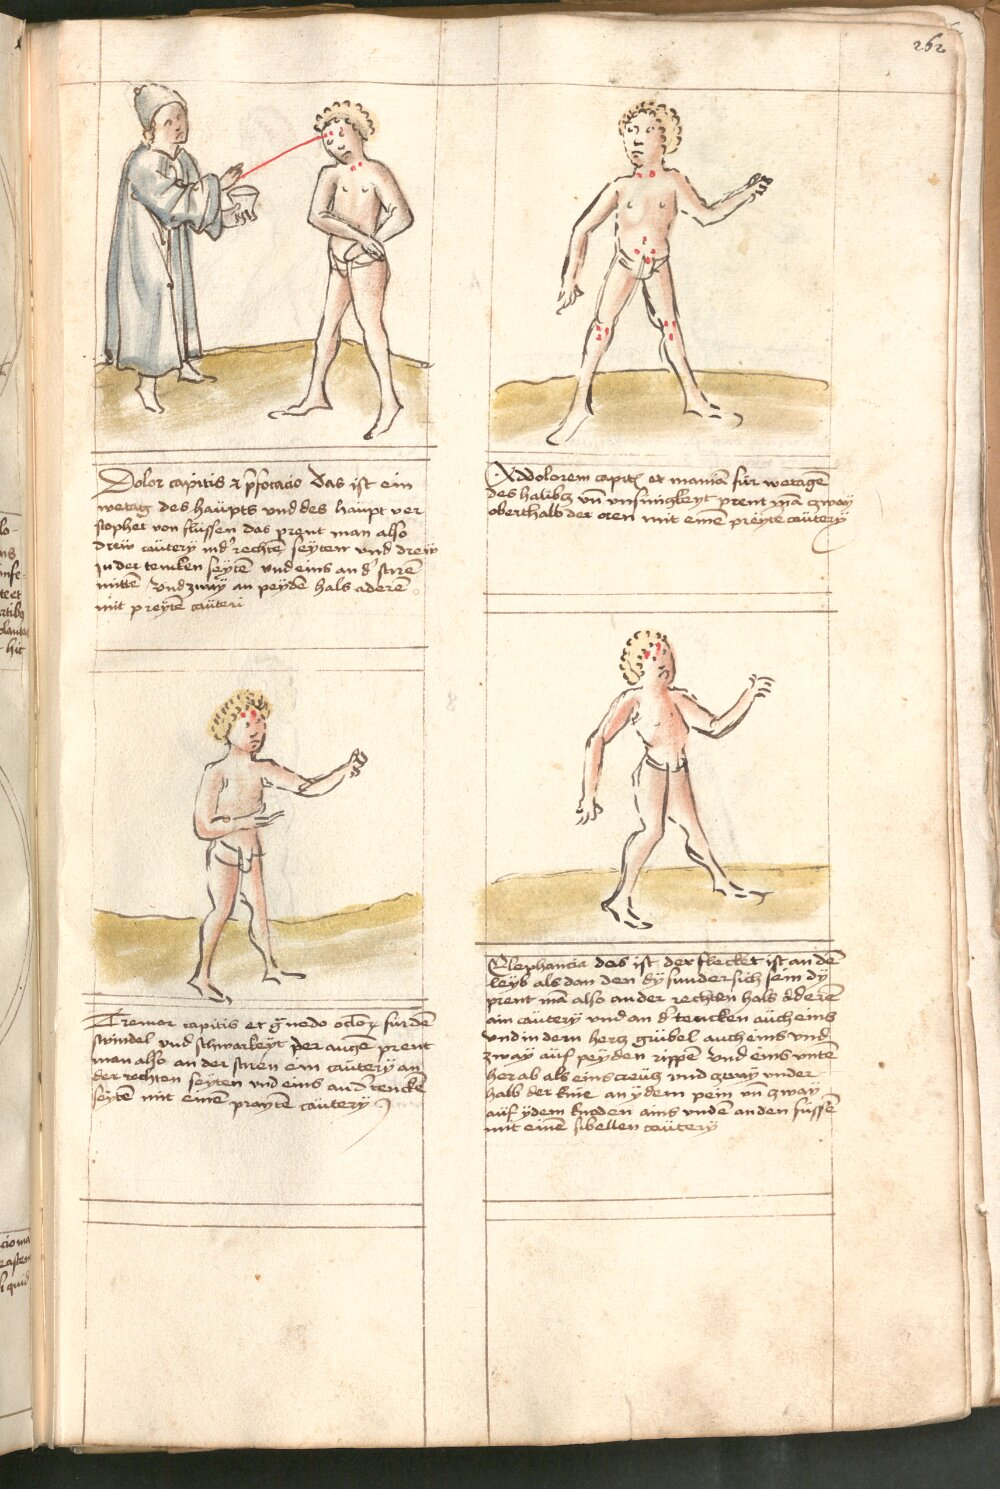 262
Dolor capitis et p̄focacio Das ist ein
wetag des haüpts vnd des haupt ver
stophet von flüssen das prent man also
dreiv caütery in d' rechtē seyten vnd dreiv
in der tencken seytē vnd eins an d' stirē
mittē vnd zway an peydē hals aderē
mit preytē caüteri
Ad dolorem capit et maniā für wetagē
des haubtz vn̄ vnsinnigkeyt prent mā zway
oberthalb der oren mit einē preytē caütery
Tremor capitis et g̃uedo oclor für dē
swindel vnd schwarkeyt der augē prent
man also an der stiren ein caütery an
der rechten seyten vnd eins an d' tencken
seytē mit einē praytē caütery
Elephancia das ist der flecket ist an dē
leyb als dan den dy sundersich sein dy
prent mā also an der rechten hals aderē
ain caütery vnd an d' tencken aüch eins
vnd in dem hertz grübel auch eins vnd
zway aüf peyden rippē vnd eins vntē
herab als eins creütz vnd zway vnder
halb der knie an ydem pein vn̄ zway
aüf ydem knoden ains vndē an den füssē
mit einē sibellen caütery